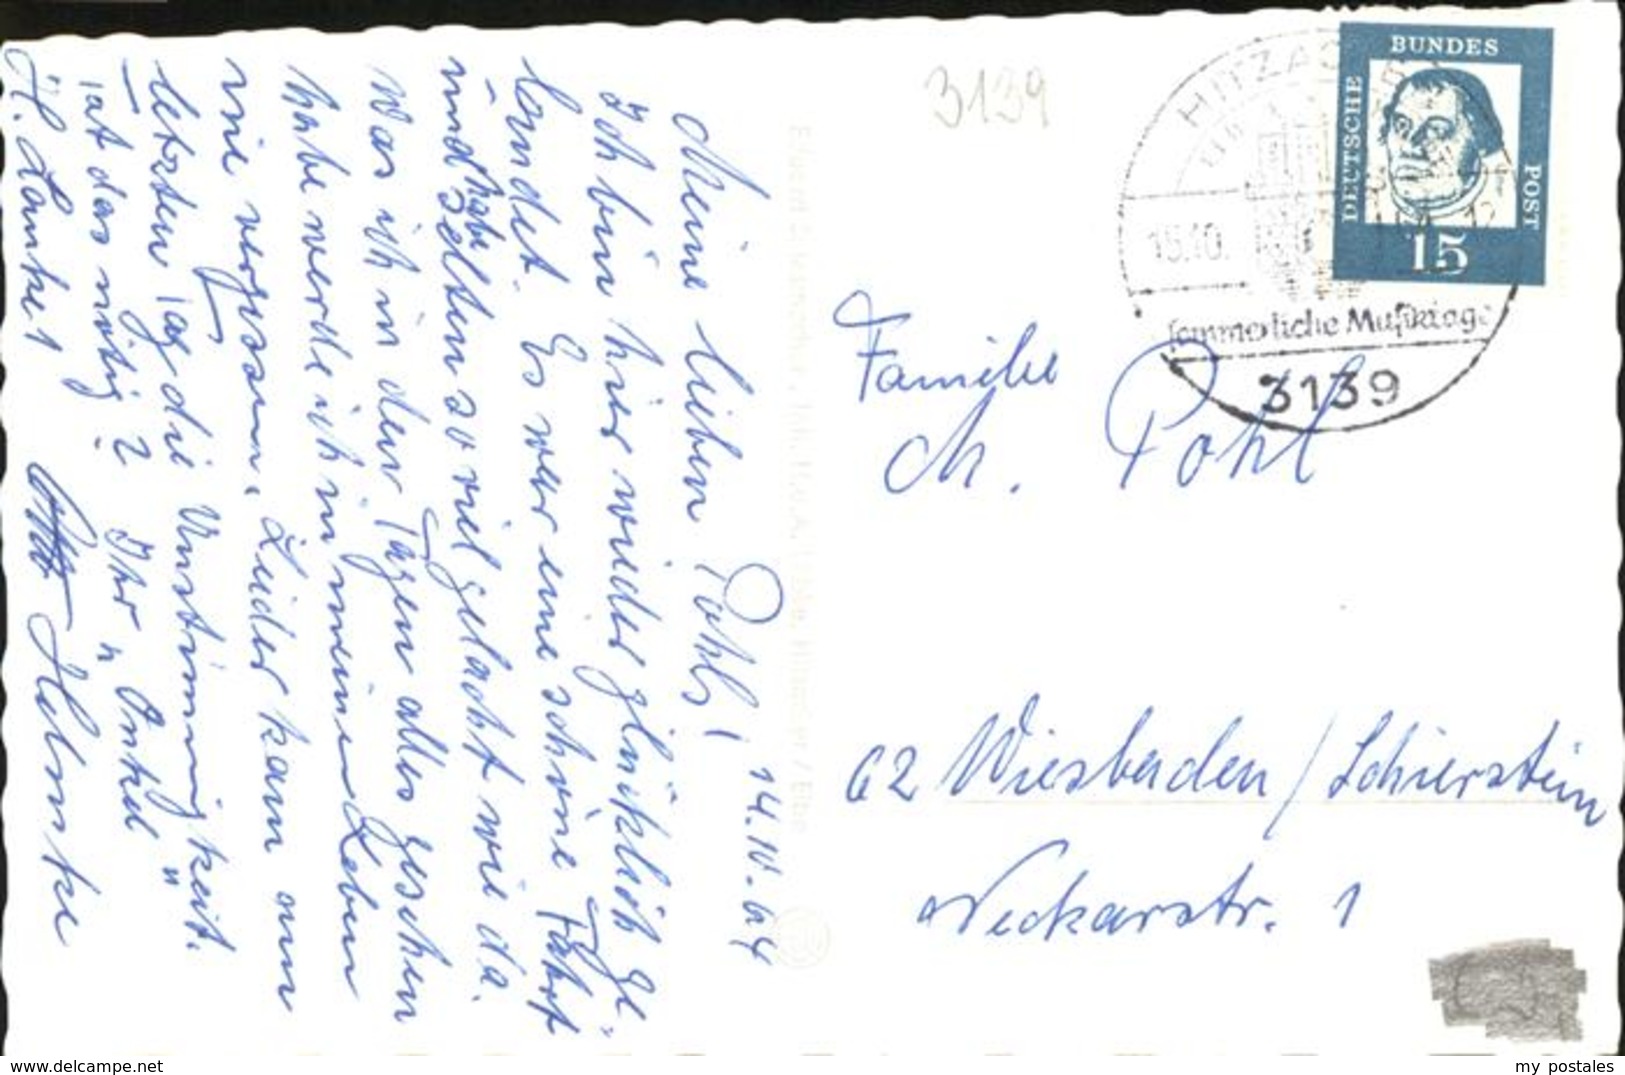 3139
HITZAC
15.10.
sommerliche Musiktage
3139
BUNDES
DEUTSCHE
POST
15
Meine lieben Pohls!
14.IV.64
Ich bin hier wieder glücklich ge-
landet. Es war eine schöne Fahrt
und habe selten so viel gelacht wie da.
Was ich in den Tagen alles gesehen
habe werde ich in meinem Leben
nie vergessen. Leider kam am
letzten Tag die Unstimmigkeit.
Tat das nötig? Ihr "Onkel"
H. Lanket Otto
Familie
M. Pohl
62 Wiesbaden/Schierstein
Neckarstr. 1
www.delcampe.net
my postales